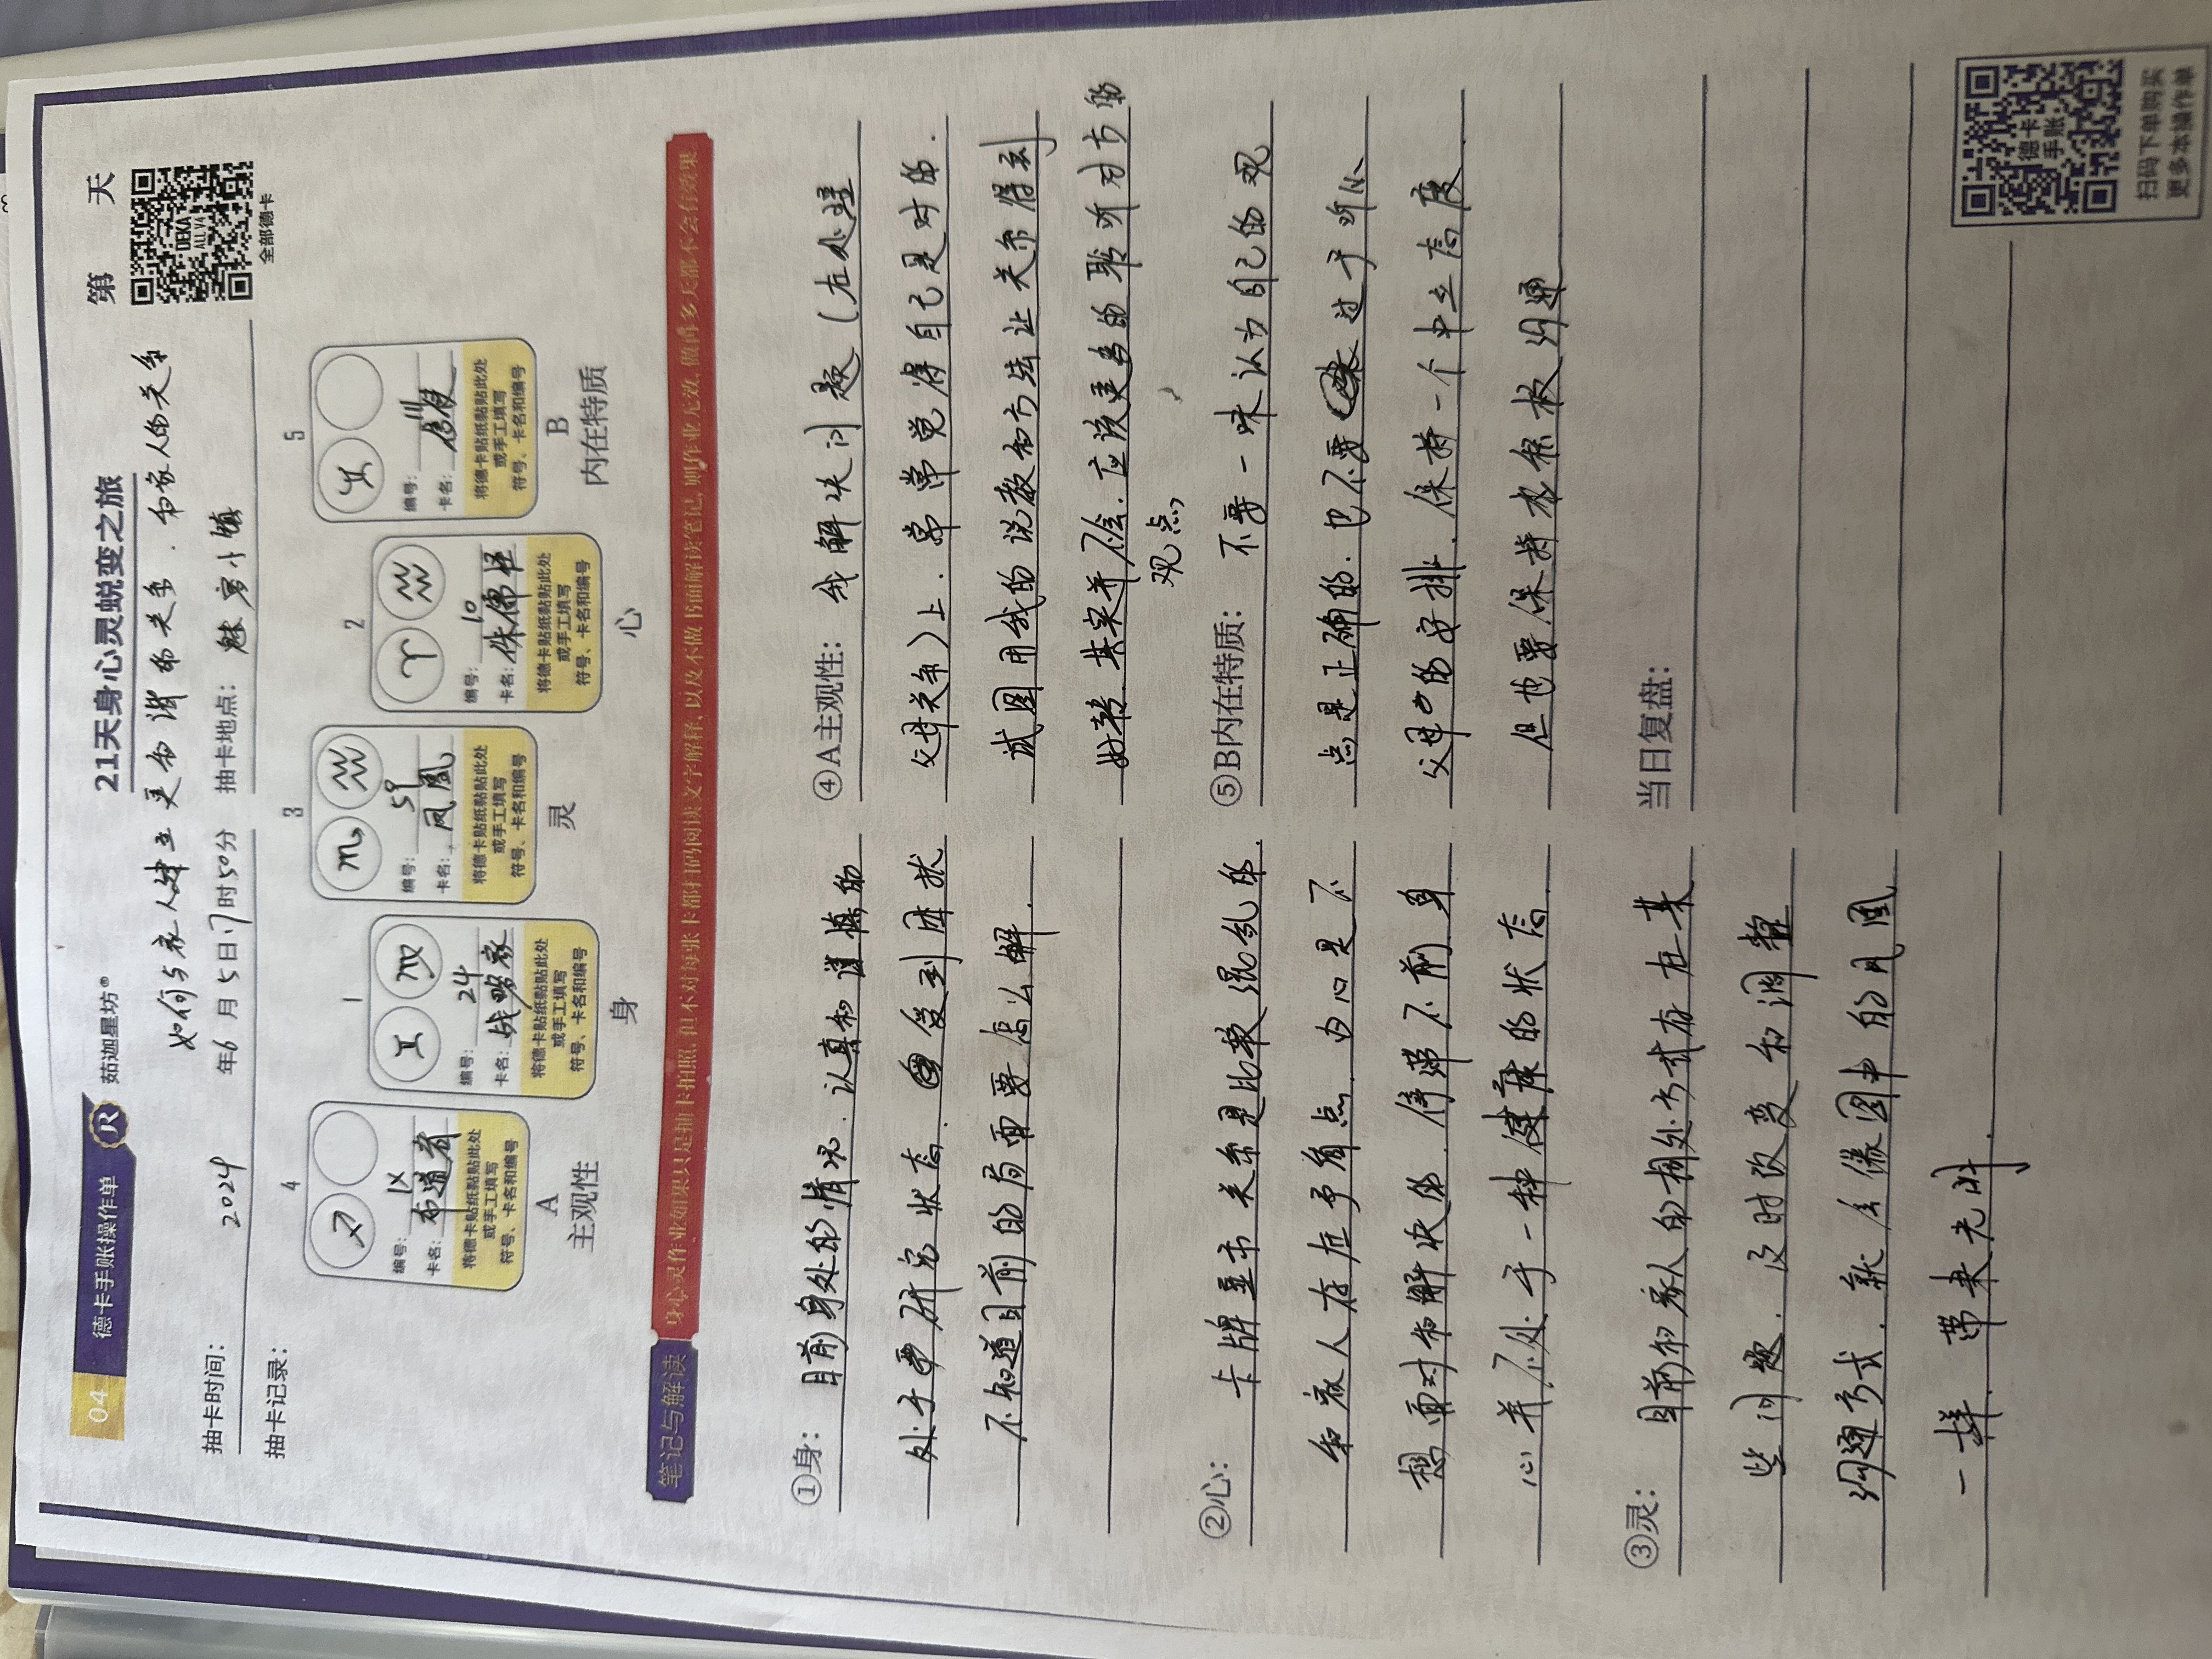 04 德卡手账操作单
茹迦星坊®
21天身心灵蜕变之旅
第 天
DEKA
ALL V4
全部德卡
如何与家人建立更和谐的关系.和家人的关系
抽卡时间: 2024 年6月5日17时50分 抽卡地点: 魅
抽卡记录:
4
编号: IX
卡名: 布道者
将德卡贴纸黏贴此处
或手工填写
符号、卡名和编号
A
主观性
1
编号: 24
卡名: 战略家
将德卡贴纸黏贴此处
或手工填写
符号、卡名和编号
身
3
编号: 59
卡名: 凤凰
将德卡贴纸黏贴此处
或手工填写
符号、卡名和编号
灵
2
编号: 10
卡名: 侏儒怪
将德卡贴纸黏贴此处
或手工填写
符号、卡名和编号
心
5
编号:
卡名:
将德卡贴纸黏贴此处
或手工填写
符号、卡名和编号
B
内在特质
笔记与解读
身心灵作业如果只是抽卡拍照,但不对每张卡都扫码阅读文字解释,以及不做书面解读笔记,则作业无效,做再多天都不会有效果
①身: 目前身处的情况.认真和谨慎的
处于要研究状态.受到
不知道目前的局面要怎么解.
②心: 卡牌显示关系是比较混乱的.
和家人存在矛盾点.内心是不
想面对和解决的.停滞不前身
心并不处于一种健康的状态.
③灵: 目前和家人的相处方式存在某
些问题.及时改变和调整
沟通方式.就会像图中的凤凰
一样.带来光明.
④A主观性: 我解决问题(在处理
父母关系)上.常常觉得自己是对的.
试图用我的说教和方法让关系得到
好转.其实并不会.应该更多的聆听对方的
观点
⑤B内在特质: 不要一味认为自己的观
点是正确的.也不要过于听从
父母的安排.保持一个中立态度.
但也要保持积极沟通
当日复盘:
德卡
手账
扫码下单购买
更多本操作单